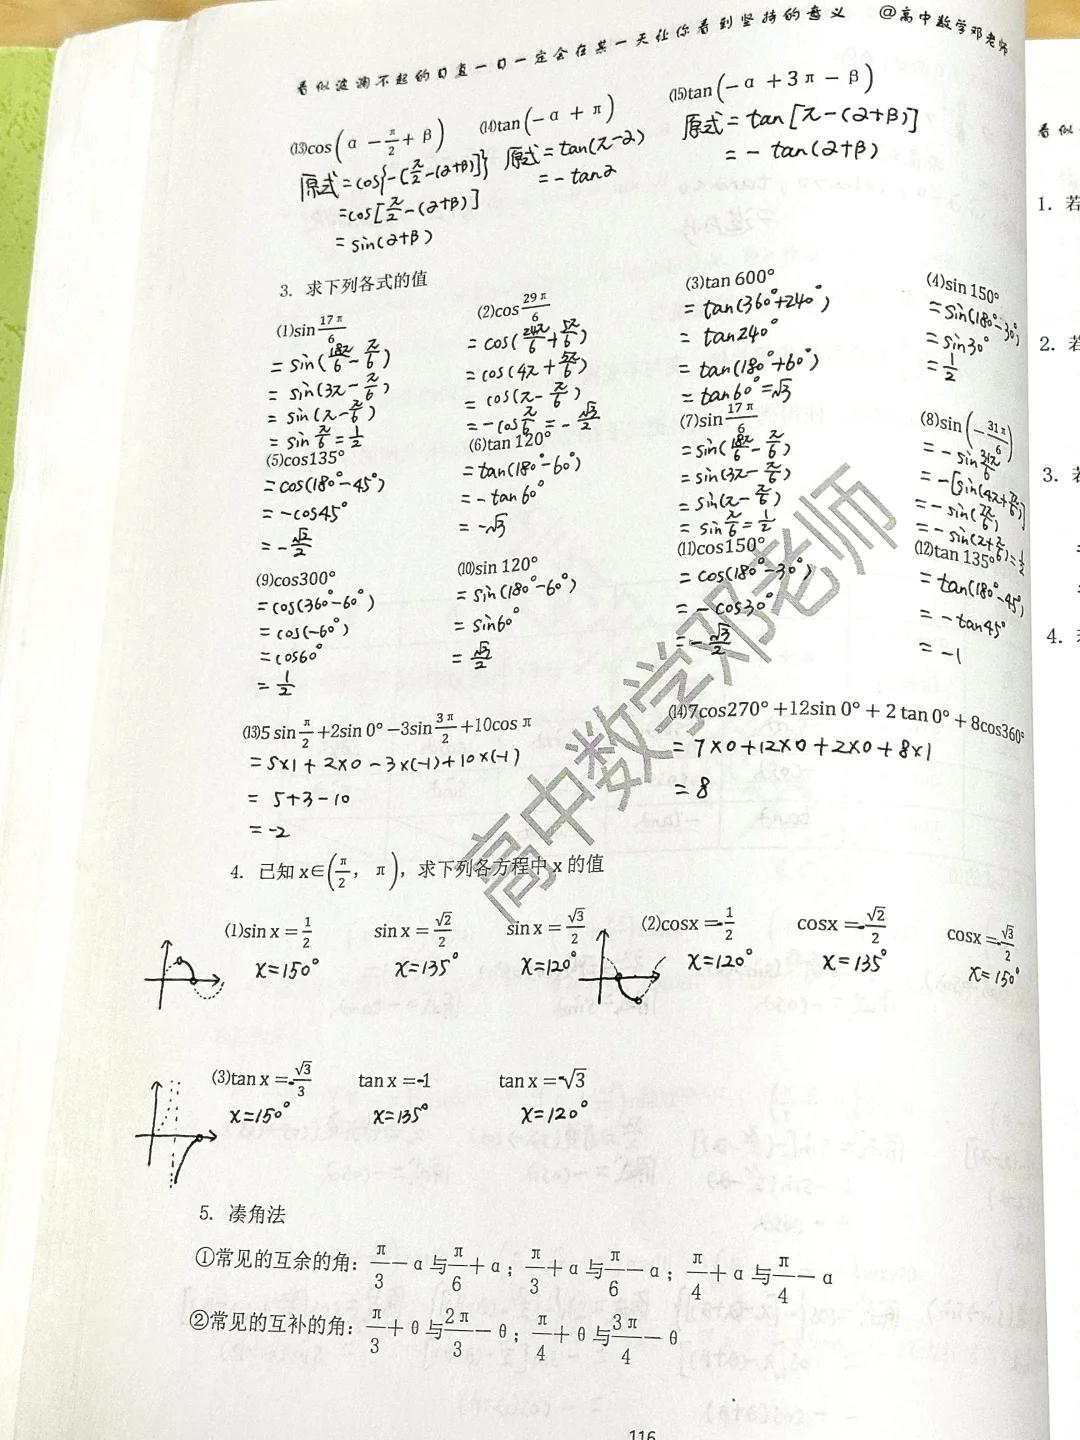 看似波澜不起的日复一日一定会在某一天让你看到坚持的意义 @高中数学邓老师
⒀cos(α－π/2＋β) ⒁tan(－α＋π) ⒂tan(－α＋3π－β)
原式=cos{-[π/2-(α+β)]} 原式=tan(π-α) 原式=tan[π-(α+β)]
=cos[π/2-(α+β)] =-tanα =-tan(α+β)
=sin(α+β)
3. 求下列各式的值
(1)sin17π/6
=sin(18π/6-π/6)
=sin(3π-π/6)
=sin(π-π/6)
=sinπ/6=1/2
(2)cos29π/6
=cos(24π/6+5π/6)
=cos(4π+5π/6)
=cos(π-π/6)
=-cosπ/6=-√3/2
(3)tan 600°
=tan(360°+240°)
=tan240°
=tan(180°+60°)
=tan60°=√3
(4)sin 150°
=sin(180°-30°)
=sin30°
=1/2
(5)cos135°
=cos(180°-45°)
=-cos45°
=-√2/2
(6)tan 120°
=tan(180°-60°)
=-tan60°
=-√3
(7)sin17π/6
=sin(18π/6-π/6)
=sin(3π-π/6)
=sin(π-π/6)
=sinπ/6=1/2
(8)sin(－31π/6)
=-sin31π/6
=-[sin(4π+7π/6)]
=-sin(7π/6)
=-sin(π+π/6)=1/2
(9)cos300°
=cos(360°-60°)
=cos(-60°)
=cos60°
=1/2
⑽sin 120°
=sin(180°-60°)
=sin60°
=√3/2
⑾cos150°
=cos(180°-30°)
=-cos30°
=-√3/2
⑿tan 135°
=tan(180°-45°)
=-tan45°
=-1
⒀5 sinπ/2+2sin 0°－3sin3π/2+10cos π
=5×1+2×0-3×(-1)+10×(-1)
=5+3-10
=-2
⒁7cos270°+12sin 0°+2 tan 0°+8cos360°
=7×0+12×0+2×0+8×1
=8
4. 已知 x∈(π/2，π)，求下列各方程中 x 的值
(1)sin x=1/2 sin x=√2/2 sin x=√3/2 (2)cosx=-1/2 cosx=-√2/2 cosx=-√3/2
x=150° x=135° x=120° x=120° x=135° x=150°
(3)tan x=-√3/3 tan x=-1 tan x=-√3
x=150° x=135° x=120°
5. 凑角法
①常见的互余的角：π/3－α与π/6＋α；π/3＋α与π/6－α；π/4＋α与π/4－α
②常见的互补的角：π/3＋θ与2π/3－θ；π/4＋θ与3π/4－θ
116
高中数学邓老师
看似
1. 若
2. 若
3. 若
4. 若